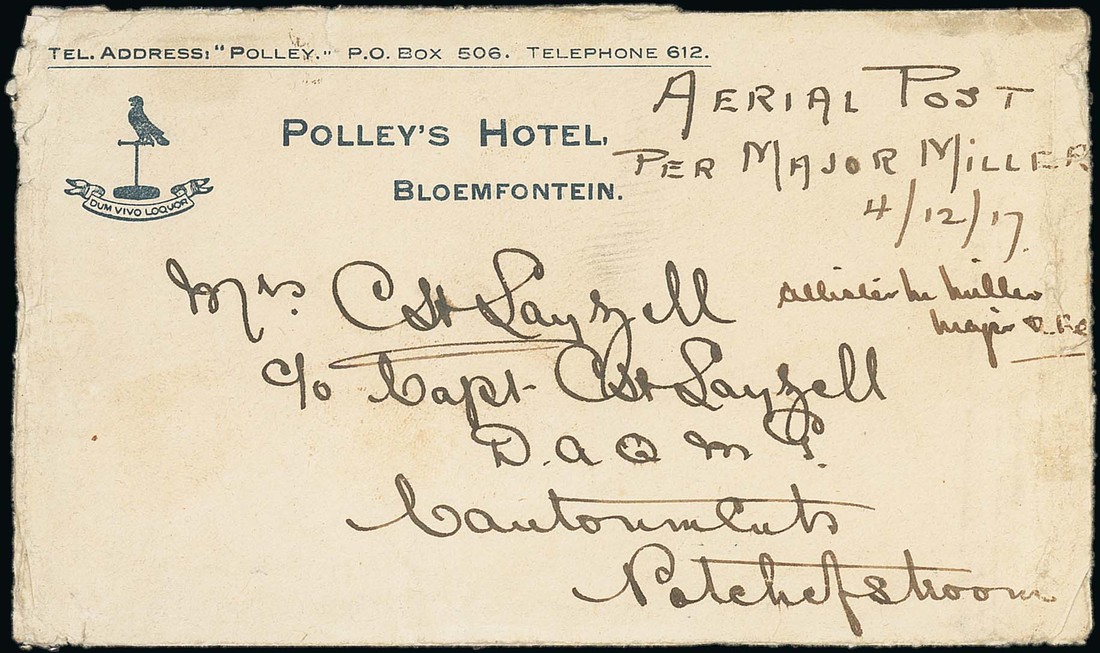 TEL. ADDRESS: "POLLEY." P.O. BOX 506. TELEPHONE 612.
POLLEY'S HOTEL,
BLOEMFONTEIN.
DUM VIVO LOQUOR
AERIAL POST
PER MAJOR MILLER
4/12/17.
Allister M Miller
Major
Mrs C St Layzell
c/o Capt C St Layzell
D.A.Q.M.G.
Cantonments
Potchefstroom